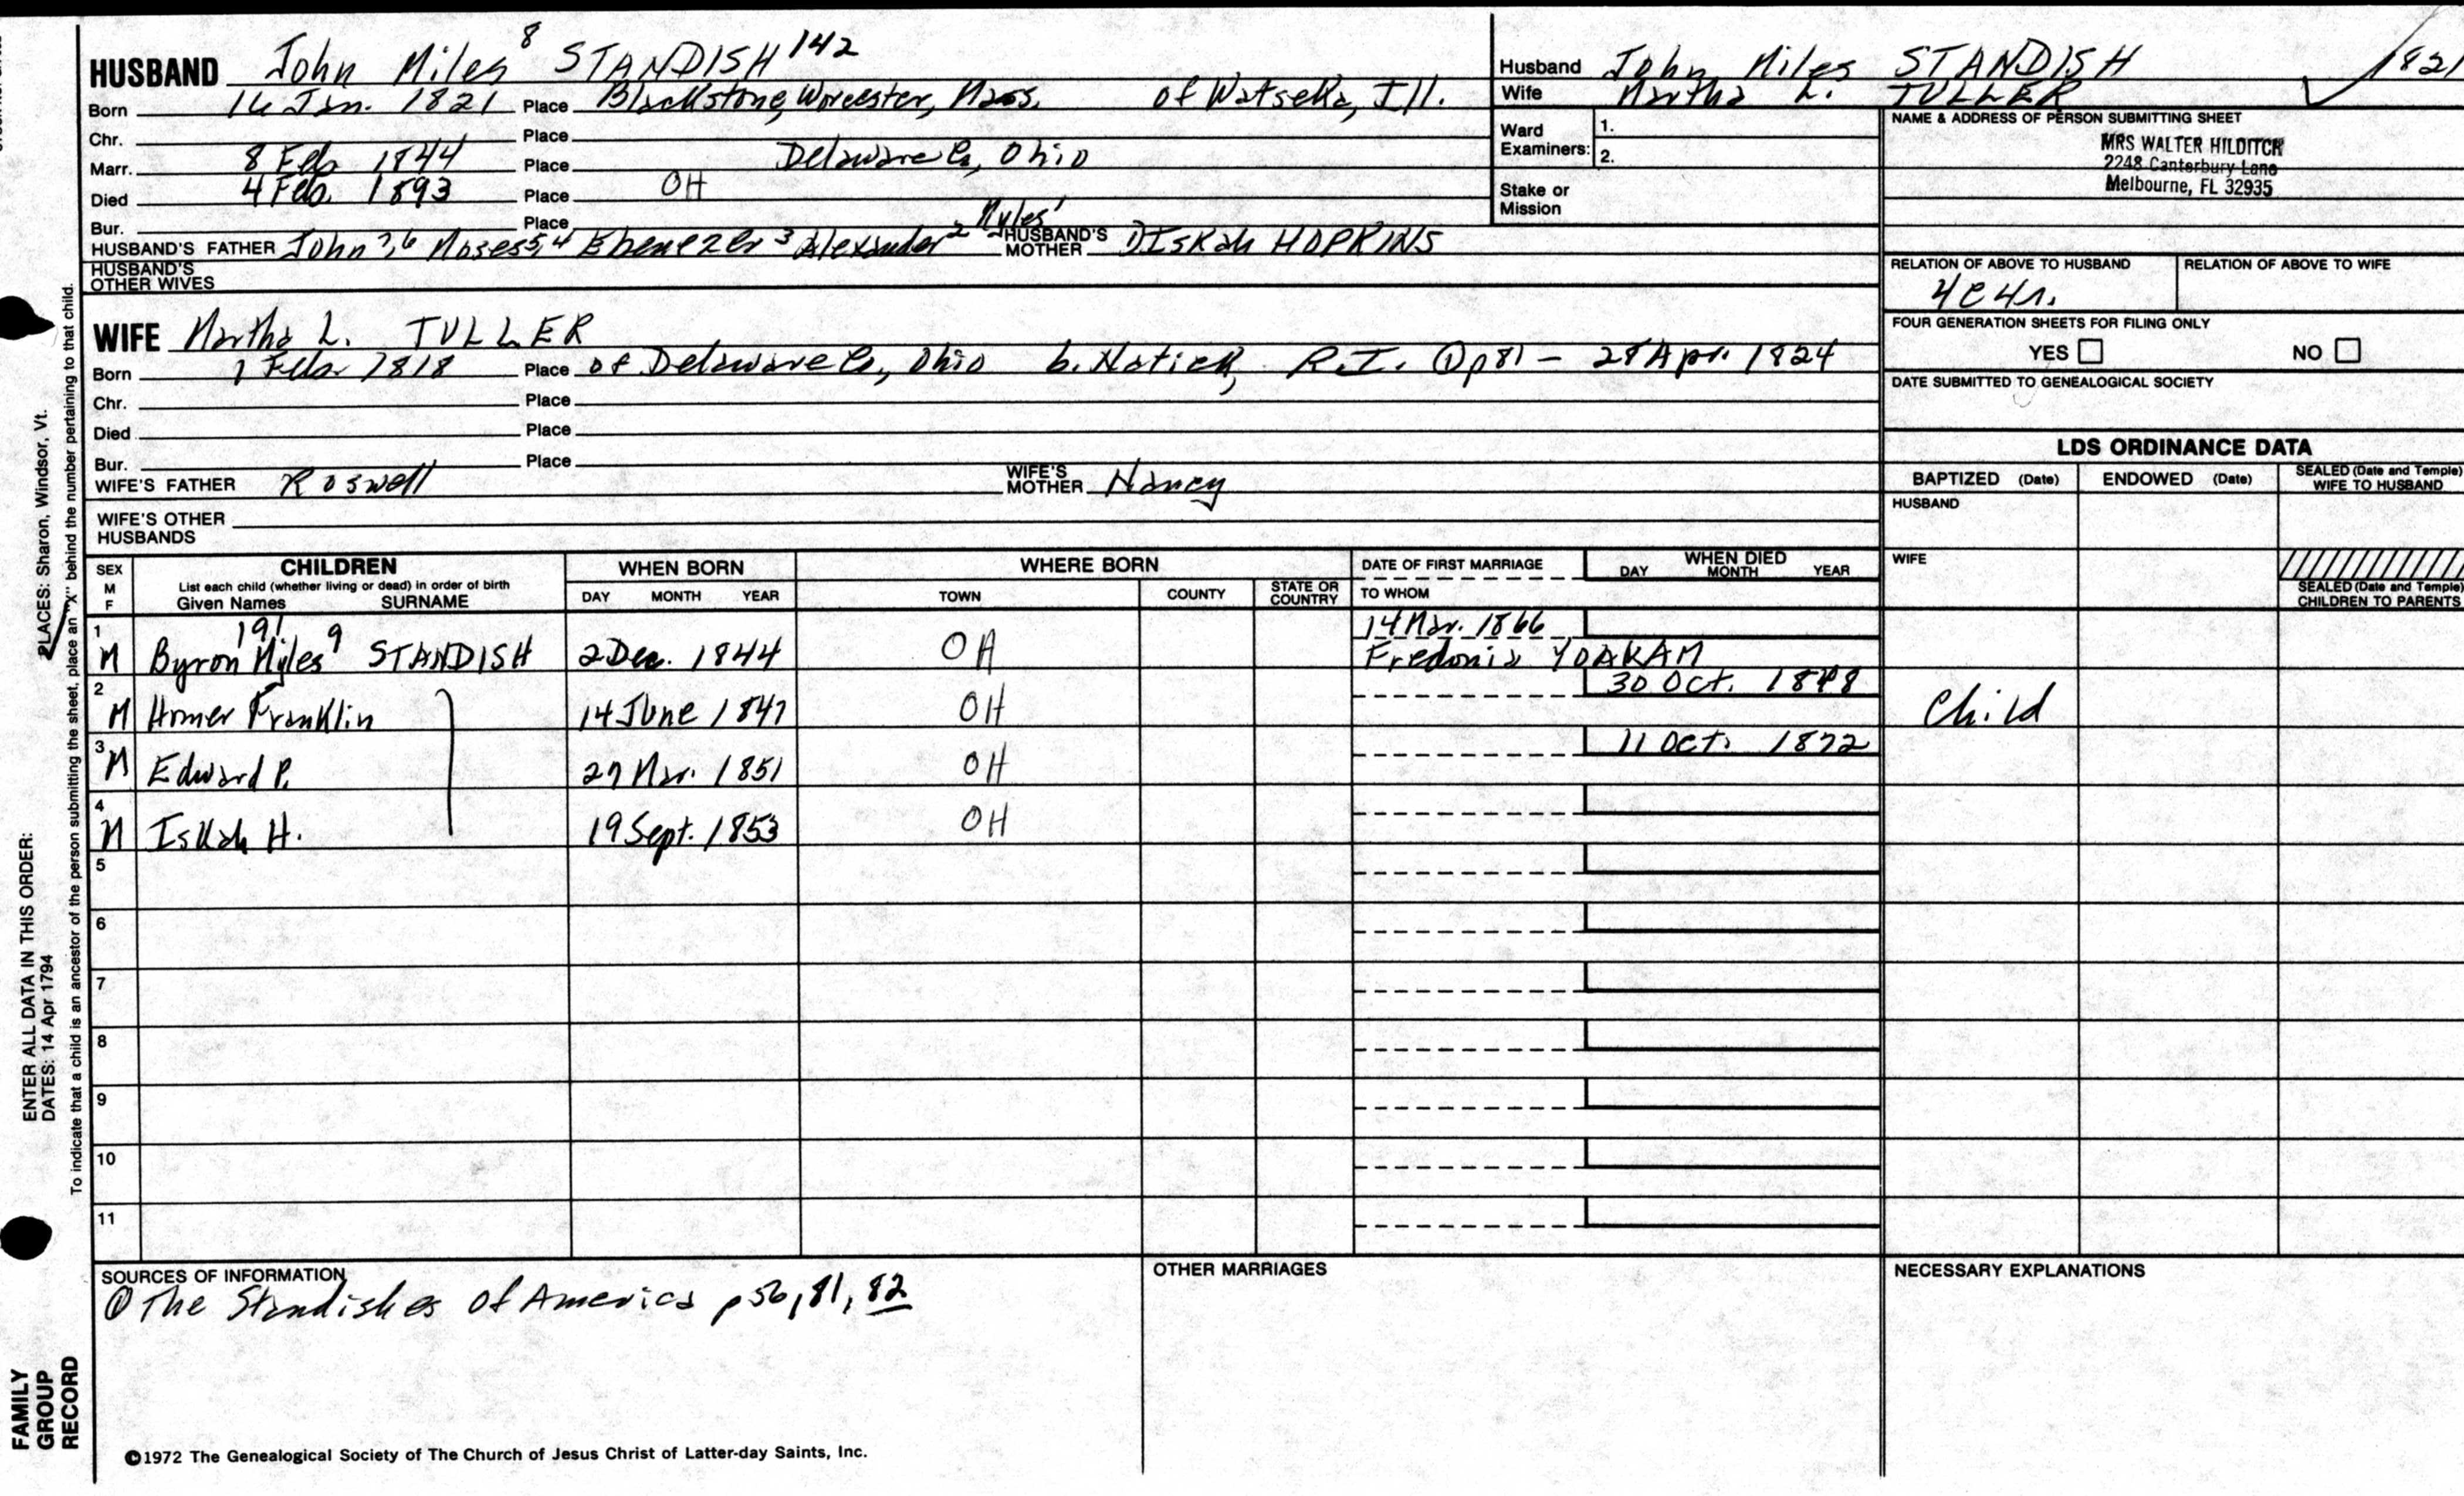 HUSBAND John Miles 8 STANDISH 142
Born 16 Jan. 1821 Place Blackstone, Worcester, Mass. of Watseka, Ill.
Chr. Place
Marr. 8 Feb 1844 Place Delaware Co, Ohio
Died 4 Feb. 1893 Place OH
Bur. Place
HUSBAND'S FATHER John 7,6 Moses 5,4 Ebenezer 3 Alexander 2 Myles 1 HUSBAND'S MOTHER DISKah HOPKINS
HUSBAND'S OTHER WIVES
Husband John Miles STANDISH 1821
Wife Martha L. TULLER
Ward Examiners: 1.
2.
Stake or Mission
NAME & ADDRESS OF PERSON SUBMITTING SHEET
MRS WALTER HILDITCH
2248 Canterbury Lane
Melbourne, FL 32935
RELATION OF ABOVE TO HUSBAND RELATION OF ABOVE TO WIFE
4c4r.
FOUR GENERATION SHEETS FOR FILING ONLY
YES NO
DATE SUBMITTED TO GENEALOGICAL SOCIETY
WIFE Martha L. TULLER
Born 1 Feb. 1818 Place of Delaware Co., Ohio b. Natick, R.I. ① p81 - 28 Apr. 1824
Chr. Place
Died Place
Bur. Place
WIFE'S FATHER Roswell WIFE'S MOTHER Nancy
WIFE'S OTHER HUSBANDS
LDS ORDINANCE DATA
BAPTIZED (Date) ENDOWED (Date) SEALED (Date and Temple) WIFE TO HUSBAND
HUSBAND
WIFE
SEALED (Date and Temple) CHILDREN TO PARENTS
SEX M F CHILDREN List each child (whether living or dead) in order of birth Given Names SURNAME
WHEN BORN DAY MONTH YEAR
WHERE BORN TOWN COUNTY STATE OR COUNTRY
DATE OF FIRST MARRIAGE TO WHOM
WHEN DIED DAY MONTH YEAR
1 M Byron Myles 191 9 STANDISH 2 Dec. 1844 OH 14 Mar. 1866 Fredonia YOAKAM
2 M Homer Franklin 14 June 1847 OH 30 Oct. 1848 Child
3 M Edward P. 27 Mar. 1851 OH 11 Oct. 1872
4 M Iskah H. 19 Sept. 1853 OH
5
6
7
8
9
10
11
SOURCES OF INFORMATION
① The Standishes of America p 56, 81, 82
OTHER MARRIAGES
NECESSARY EXPLANATIONS
©1972 The Genealogical Society of The Church of Jesus Christ of Latter-day Saints, Inc.
FAMILY GROUP RECORD
ENTER ALL DATA IN THIS ORDER:
DATES: 14 Apr 1794
PLACES: Sharon, Windsor, Vt.
To indicate that a child is an ancestor of the person submitting the sheet, place an "X" behind the number pertaining to that child.